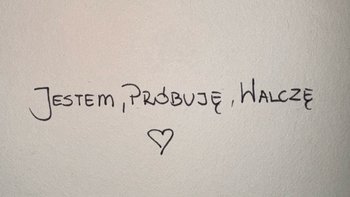 JESTEM, PRÓBUJĘ, WALCZĘ